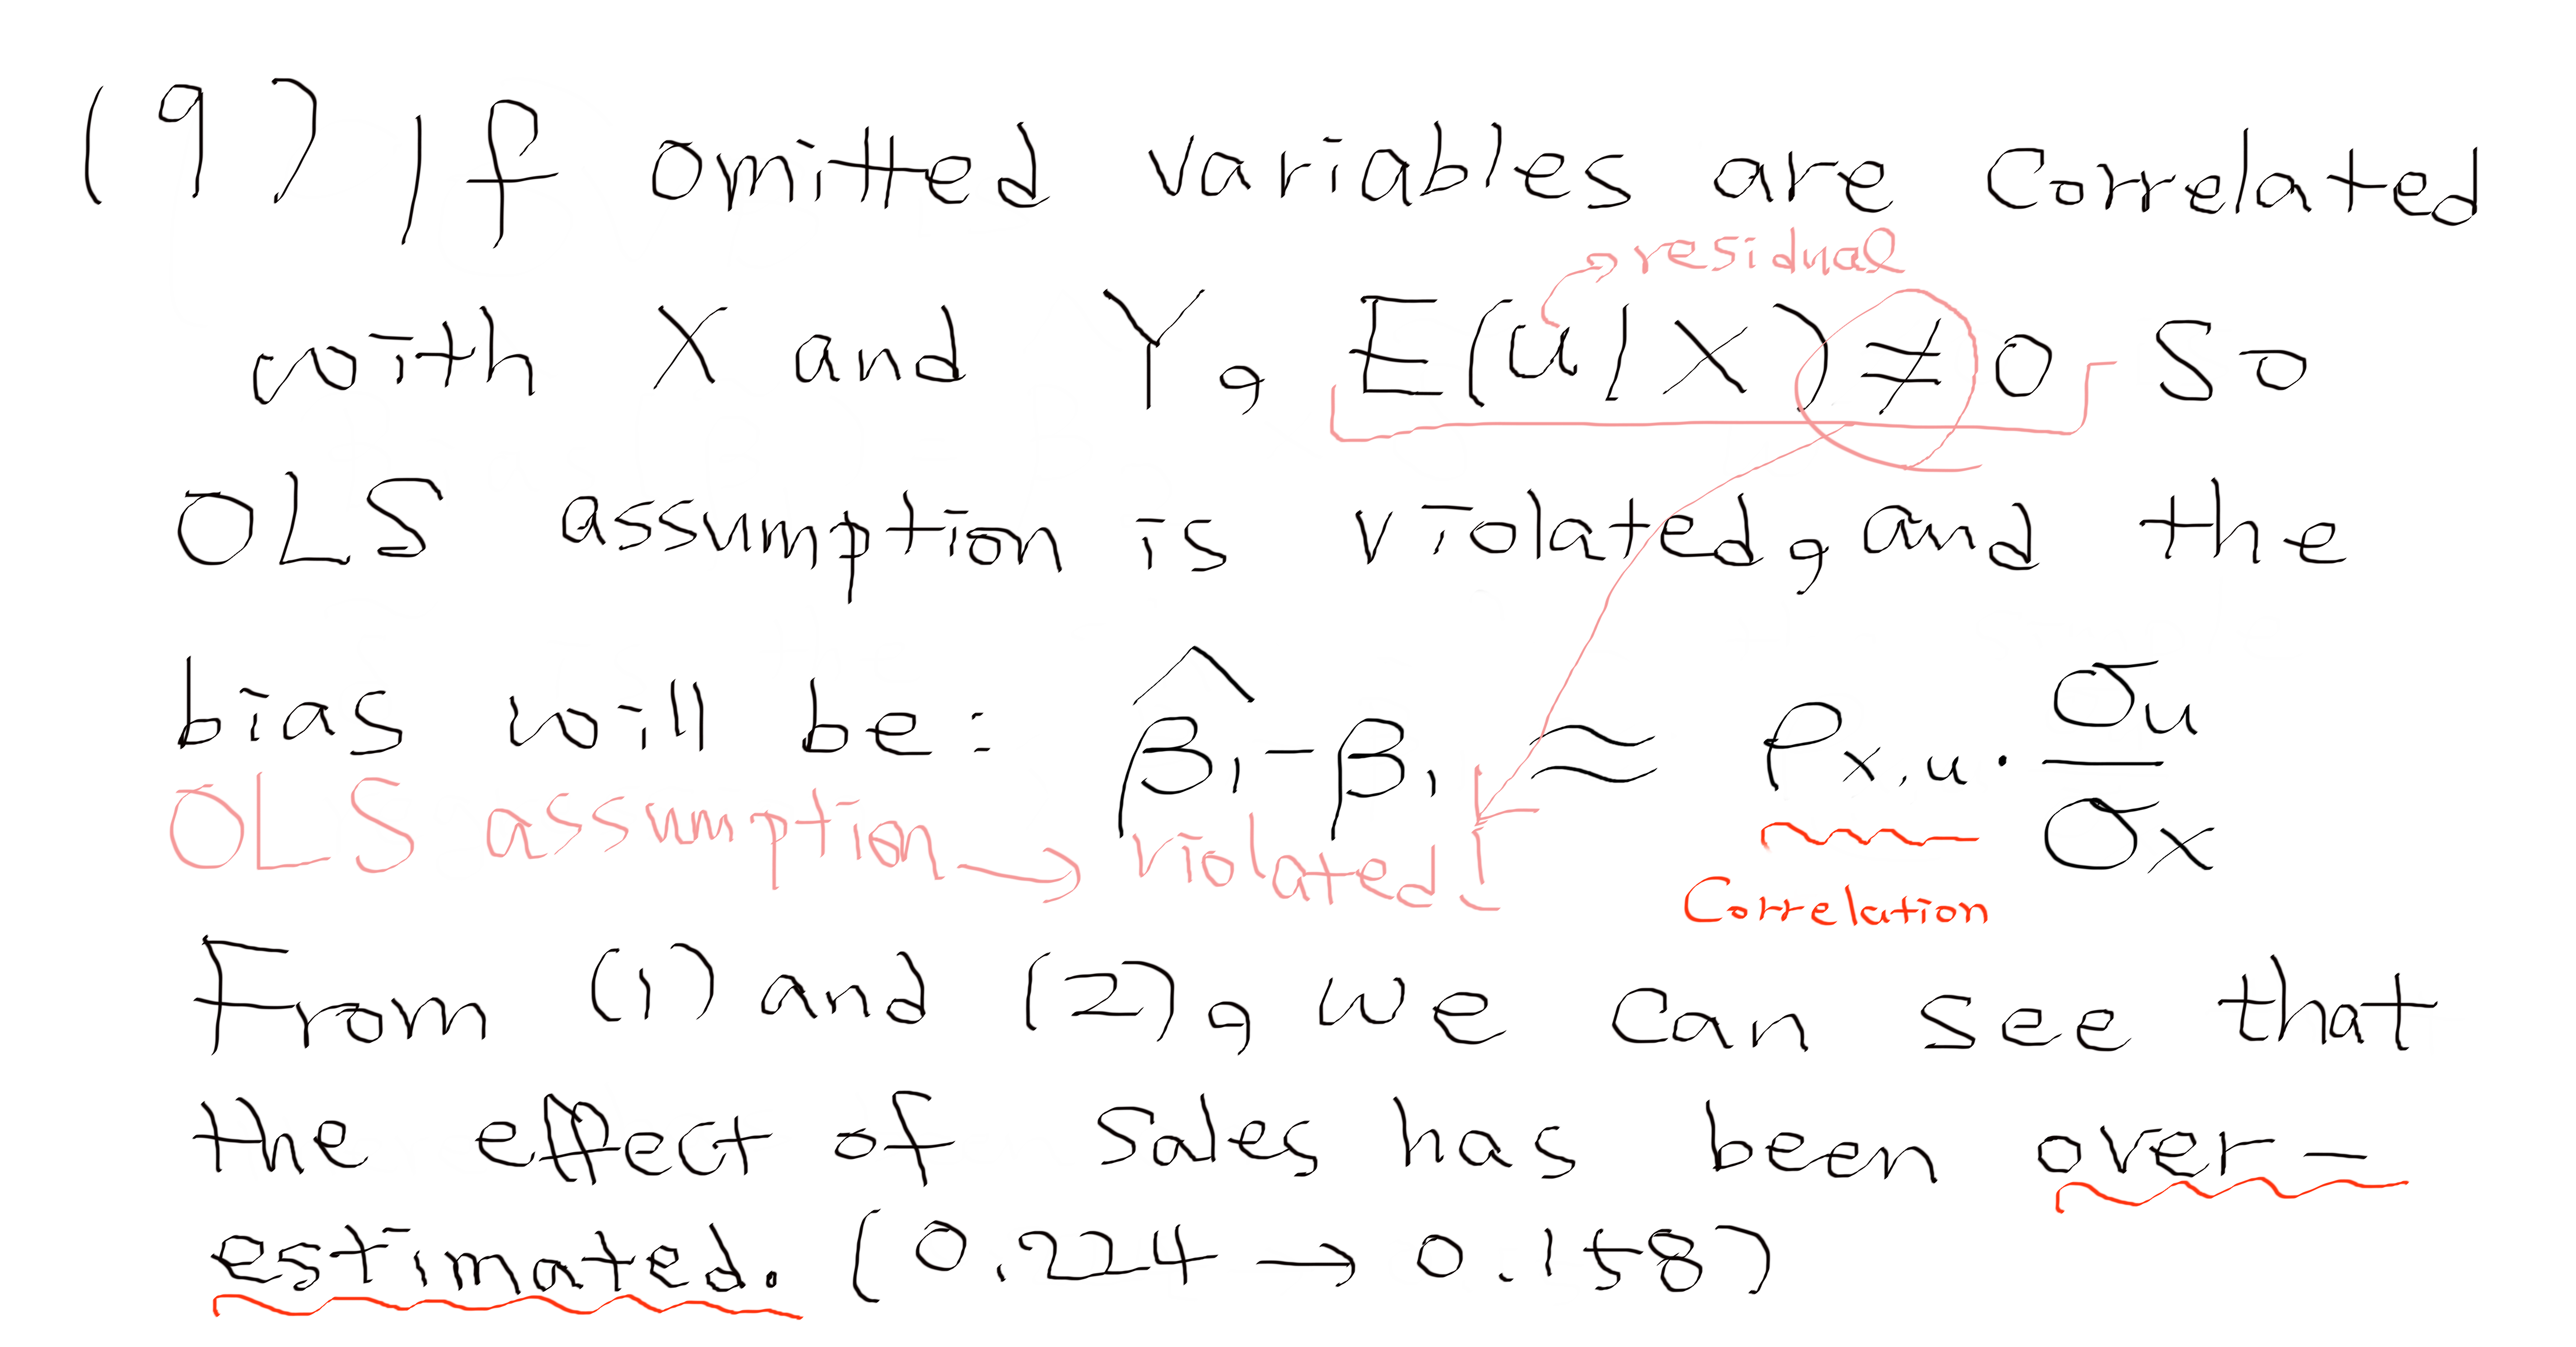 (9) If omitted variables are correlated
residual
with X and Y, E(u|X) ≠ 0 so
OLS assumption is violated, and the
bias will be: β̂₁ - β₁ ≈ ρx,u · σu/σx
OLS assumption → violated!
Correlation
From (1) and (2), we can see that
the effect of sales has been over-
estimated. (0.224 → 0.158)